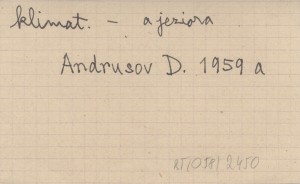 klimat. – a jeziora
Andrusov D. 1959 a
2450